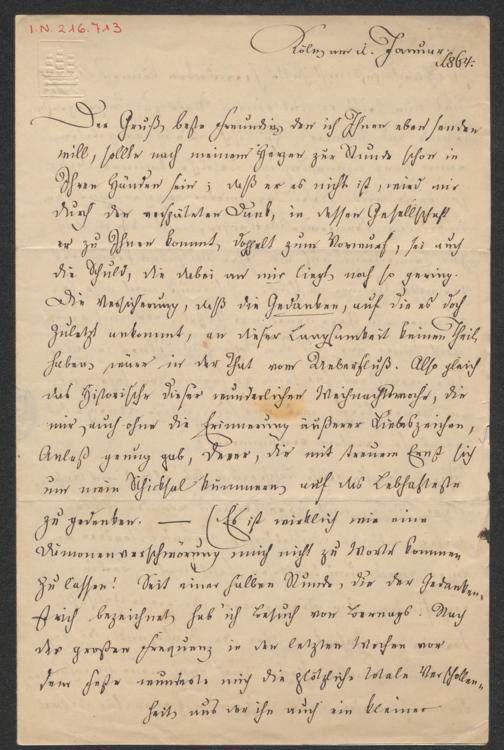 I.N. 216.713
Köln am 1. Januar
1864.
Der Gruß, beste Freundin, den ich Ihnen eben senden
will, sollte nach meinem Herzen zur Stunde schon in
Ihren Händen sein; daß er es nicht ist, wird mir
durch den verspäteten Dank, in dessen Gesellschaft
er zu Ihnen kommt, doppelt zum Vorwurf, sei auch
die Schuld, die dabei an mir liegt, noch so gering.
Die Versicherung, daß die Gedanken, auf die es doch
zuletzt ankommt, an dieser Langsamkeit keinen Theil
haben, wäre in der That vom Ueberfluß. Also gleich
das Historische dieser wunderlichen Weihnachtswoche, die
mir, auch ohne die Erinnerung äußerer Liebeszeichen,
Anlaß genug gab, Derer, die mit treuem Ernst sich
um mein Schicksal kümmern, auf das Lebhafteste
zu gedenken. — (Es ist wirklich wie eine
Dämonenverschwörung mich nicht zu Worte kommen
zu lassen! Seit einer halben Stunde, die der Gedanken-
strich bezeichnet, hab' ich Besuch von Bernays. Nach
der großen Frequenz in den letzten Wochen vor
dem Feste wunderte mich die plötzliche totale Verschollen-
heit, aus der ihn auch ein kleiner